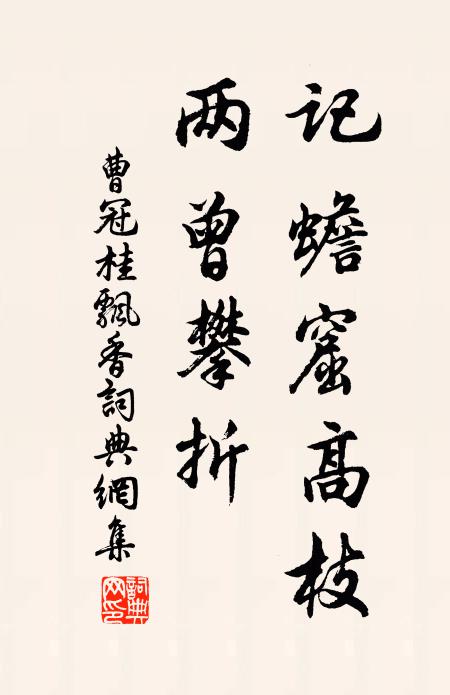 記蟾窟高枝
两曾攀折
曹冠桂飄香詞典網集
詞典网印